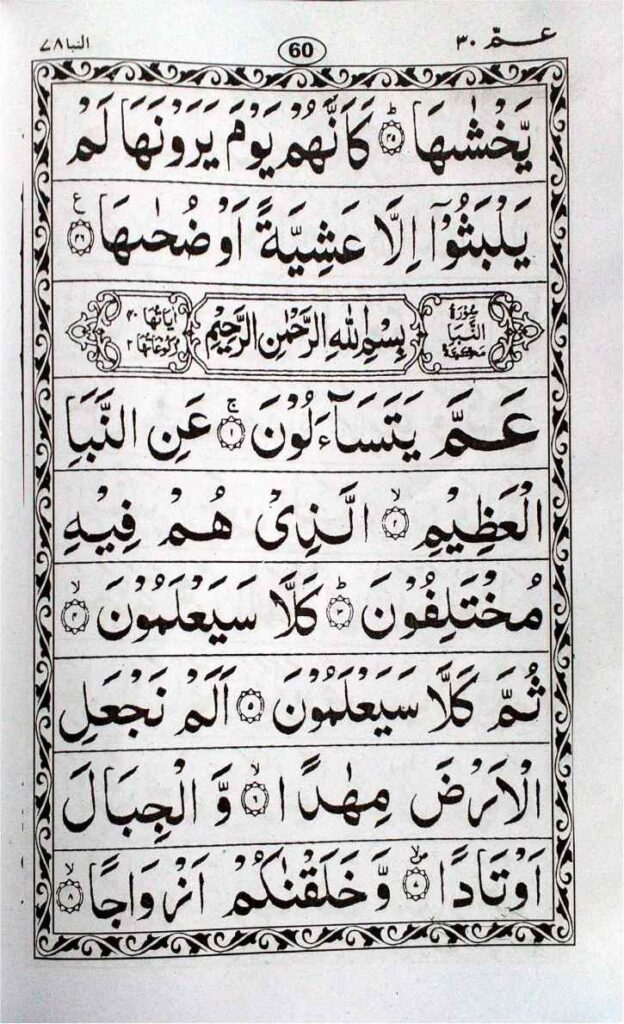 عـمّ ٣٠
60
النبا ٧٨
يَّخْشٰىهَا ؕ﴿۴۵﴾ كَاَنَّهُمْ يَوْمَ يَرَوْنَهَا لَمْ
يَلْبَثُوْۤا اِلَّا عَشِيَّةً اَوْ ضُحٰىهَا ﴿۴۶﴾ ع
سُوْرَةُ النَّبَاِ مَكِّيَّةٌ
بِسْمِ اللهِ الرَّحْمٰنِ الرَّحِيْمِ
اٰيَاتُهَا ۴۰ رُكُوْعَاتُهَا ۲
عَمَّ يَتَسَآءَلُوْنَ ۚ﴿۱﴾ عَنِ النَّبَاِ
الْعَظِيْمِ ۙ﴿۲﴾ الَّذِيْ هُمْ فِيْهِ
مُخْتَلِفُوْنَ ؕ﴿۳﴾ كَلَّا سَيَعْلَمُوْنَ ۙ﴿۴﴾
ثُمَّ كَلَّا سَيَعْلَمُوْنَ ﴿۵﴾ اَلَمْ نَجْعَلِ
الْاَرْضَ مِهٰدًا ۙ﴿۶﴾ وَّ الْجِبَالَ
اَوْتَادًا ﴿۷﴾ وَّ خَلَقْنٰكُمْ اَزْوَاجًا ۙ﴿۸﴾